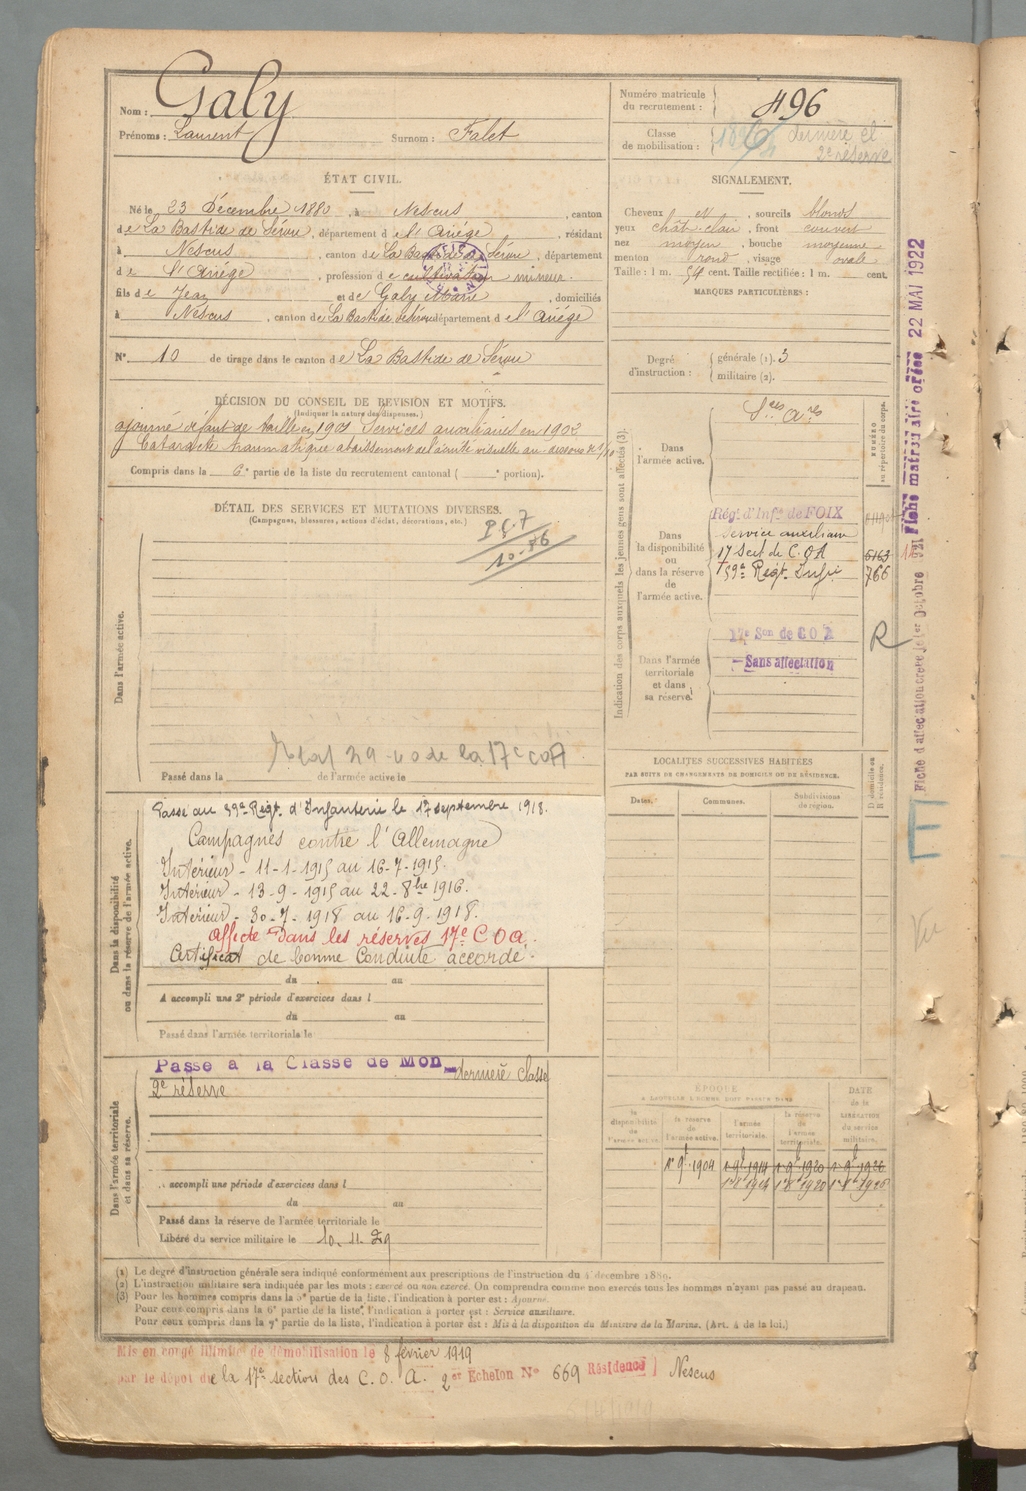 Nom : Galy
Prénoms : Laurent Surnom : Falet
ÉTAT CIVIL.
Né le 23 Décembre 1880, à Nescus, canton
de La Bastide de Sérou, département de l'Ariége, résidant
à Nescus, canton de La Bastide de Sérou, département
de l'Ariége, profession de cultivateur mineur.
fils de Jean et de Galy Marie, domiciliés
à Nescus, canton de La Bastide de Sérou département de l'Ariége
N° 10 de tirage dans le canton de La Bastide de Sérou
DÉCISION DU CONSEIL DE REVISION ET MOTIFS.
(Indiquer la nature des dispenses.)
ajourné défaut de taille en 1901 Services auxiliaires en 1902
Cataracte traumatique abaissement de l'acuité visuelle au dessous de 1/10
Compris dans la 6e partie de la liste du recrutement cantonal ( e portion).
DÉTAIL DES SERVICES ET MUTATIONS DIVERSES.
(Campagnes, blessures, actions d'éclat, décorations, etc.)
10-86
Dans l'armée active.
29 de la 17e COA
Passé dans la de l'armée active le
Dans la disponibilité
ou dans la réserve de l'armée active.
Passé au 59e Régt d'Infanterie le 17 septembre 1918.
Campagnes contre l'Allemagne
Intérieur - 11-1-1915 au 16-7-1915.
Intérieur - 13-9-1915 au 22-8bre 1916.
Intérieur - 30-7-1918 au 16-9-1918.
Affecté dans les réserves 17e C O A.
Certificat de bonne Conduite accordé.
du au
A accompli une 2e période d'exercices dans l
du au
Passé dans l'armée territoriale le
Dans l'armée territoriale
et dans sa réserve.
Passé à la Classe de Mon dernière classe
2e réserve
accompli une période d'exercices dans l
du au
Passé dans la réserve de l'armée territoriale le
Libéré du service militaire le 10.11.29
Numéro matricule
du recrutement : 496
Classe
de mobilisation : dernière cl
2e réserve
SIGNALEMENT.
Cheveux et, sourcils blonds
yeux chât. clair, front couvert
nez moyen, bouche moyenne
menton rond, visage ovale
Taille : 1 m. 54 cent. Taille rectifiée : 1 m. cent.
MARQUES PARTICULIÈRES :
Degré
d'instruction :
générale (1). 3
militaire (2).
Indication des corps auxquels les jeunes gens sont affectés (3).
NUMÉRO
au répertoire du corps.
Dans
l'armée active.
Ses Ares
Dans
la disponibilité
ou
dans la réserve
de
l'armée active.
Régt d'Infie de FOIX
service auxiliaire
17 Sect de C.O.A 6163
59e Régt Infie 766
Dans l'armée
territoriale
et dans
sa réserve.
17e Son de COA
Sans affectation
R
LOCALITÉS SUCCESSIVES HABITÉES
PAR SUITE DE CHANGEMENTS DE DOMICILE OU DE RÉSIDENCE.
Dates. Communes. Subdivisions
de région. D domicile ou
R résidence.
ÉPOQUE
A LAQUELLE L'HOMME DOIT PASSER DANS
DATE
de la
LIBÉRATION
du service
militaire.
la
disponibilité
de
l'armée active.
la réserve
de
l'armée active.
l'armée
territoriale.
la réserve
de
l'armée
territoriale.
1er 9bre 1904 1 9bre 1914 1 9bre 1920 1 9bre 1926
(1) Le degré d'instruction générale sera indiqué conformément aux prescriptions de l'instruction du 4 décembre 1889.
(2) L'instruction militaire sera indiquée par les mots : exercé ou non exercé. On comprendra comme non exercés tous les hommes n'ayant pas passé au drapeau.
(3) Pour les hommes compris dans la 5e partie de la liste, l'indication à porter est : Ajourné.
Pour ceux compris dans la 6e partie de la liste, l'indication à porter est : Service auxiliaire.
Pour ceux compris dans la 7e partie de la liste, l'indication à porter est : Mis à la disposition du Ministre de la Marine. (Art. 4 de la loi.)
Mis en congé illimité de démobilisation le 8 février 1919
par le dépôt de la 17e section des C.O.A. 2er Echelon N° 669 Résidence) Nescus
Fiche d'affectation créée le 1er Octobre 1921 Fiche matricule créée 22 MAI 1922
Vu